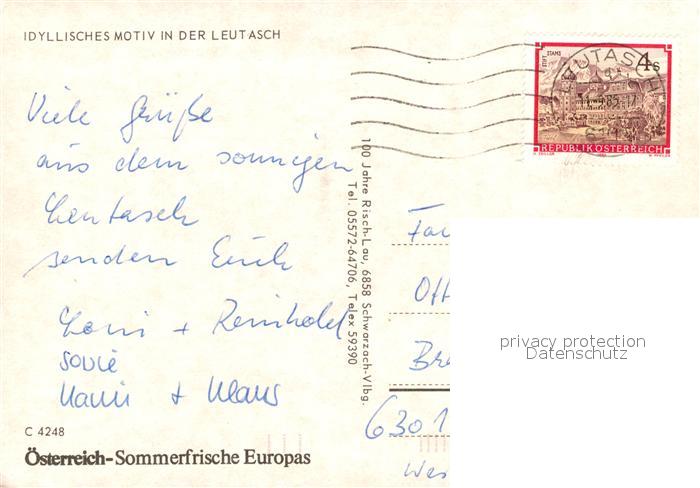 IDYLLISCHES MOTIV IN DER LEUTASCH
Viele Grüße
aus dem sonnigen
Leutasch
senden Euch
+ Reinhold
sowie
+ Klaus
C 4248
Österreich-Sommerfrische Europas
100 Jahre Risch-Lau, 6858 Schwarzach-Vlbg.
Tel. 05572-64706, Telex 59390
STIFT STAMS
4s
REPUBLIK ÖSTERREICH
LEUTASCH
Fam
Ott
Bre
6301
Wes
privacy protection
Datenschutz